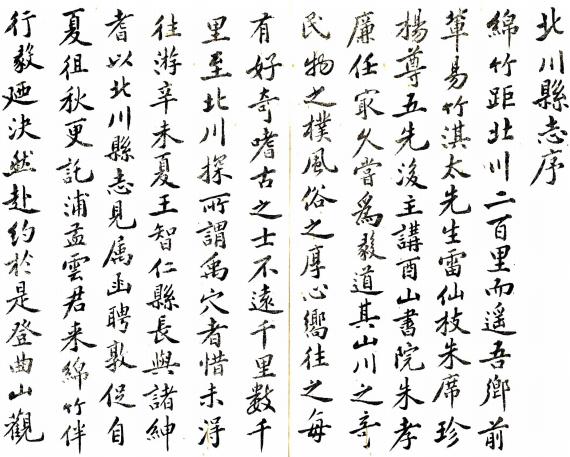 北川縣志序
綿竹距北川二百里而遥吾鄉前
輩易竹淇太先生雷仙枝朱席珍
楊尊五先後主講酉山書院朱孝
廉任寂久嘗為毅道其山川之奇
民物之樸風俗之厚心嚮往之每
有好奇嗜古之士不遠千里數千
里至北川探所謂禹穴者惜未得
往游辛未夏王智仁縣長與諸紳
耆以北川縣志見属函聘敦促自
夏徂秋更託浦孟雲君来綿竹伴
行毅廼決然赴約於是登曲山觀